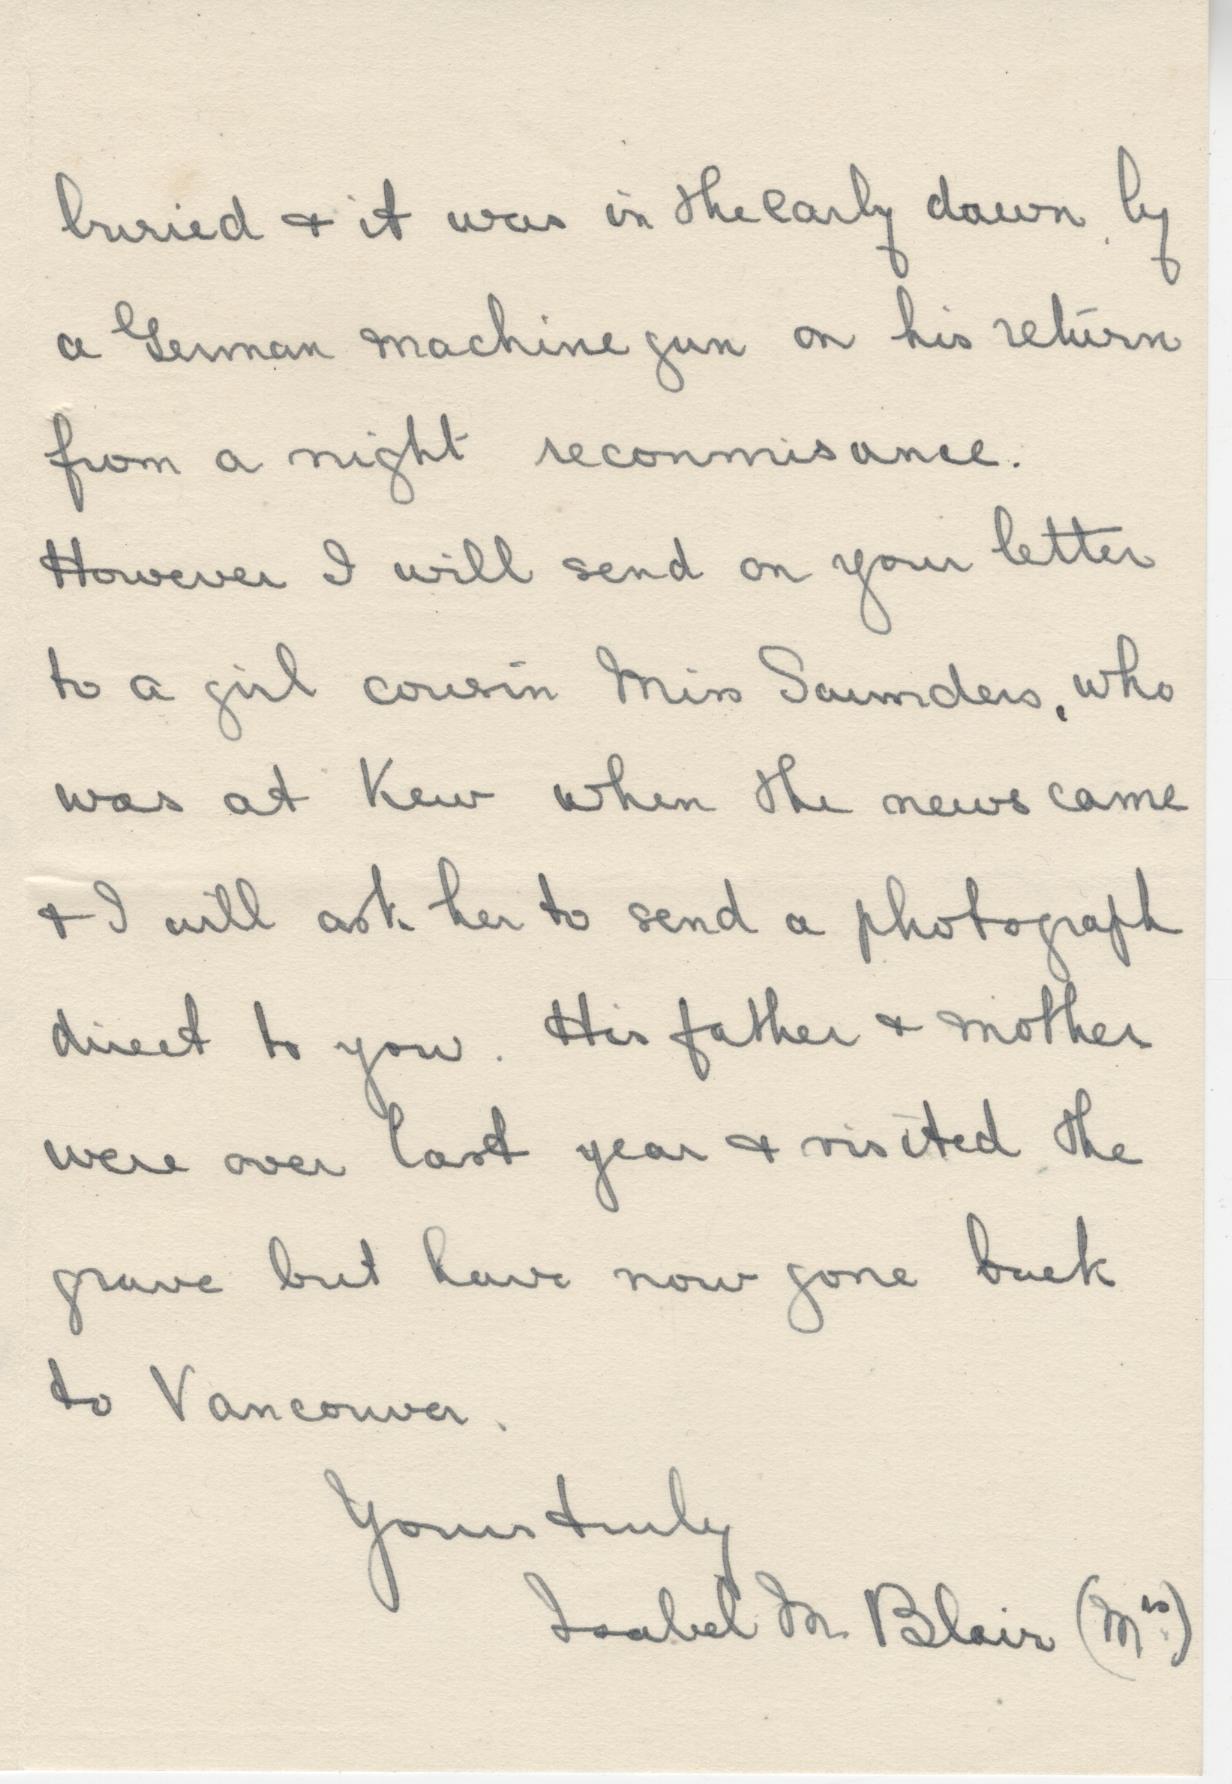 buried & it was in the early dawn by
a German machine gun on his return
from a night reconmisance.
However I will send on your letter
to a girl cousin Miss Saunders, who
was at Kew when the news came
& I will ask her to send a photograph
direct to you. His father & mother
were over last year & visited the
grave but have now gone back
to Vancouver.
Yours truly
Isabel M. Blair (Mrs)